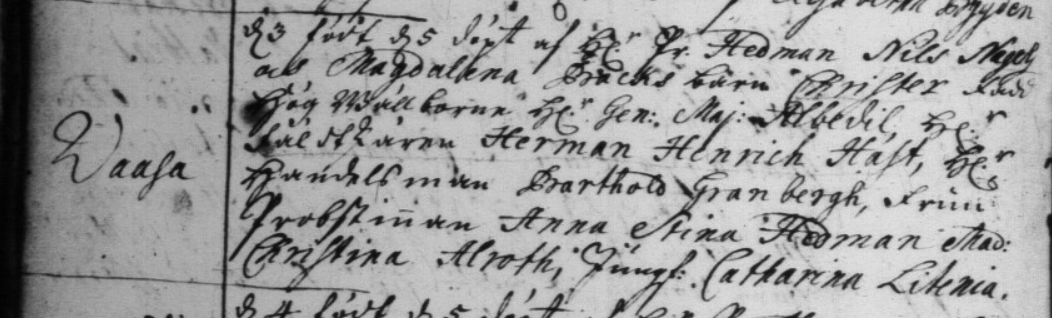 Bryden
d 3 födt d 5 döpt af H:r Pr. Hedman Nils Nagels
och Magdalena Bäcks barn Christer Fadd
Hög Wälborne H:r Gen: Maj: Albedil, H:r
Fältskären Herman Henrich Hast, H:r
Waasa
Handelsman Barthold Granbergh, Fruu
Probstinnan Anna Stina Hedman Mad:
Christina Alroth, Jungf: Catharina Litenia.
d 4 födt d 5 döpt